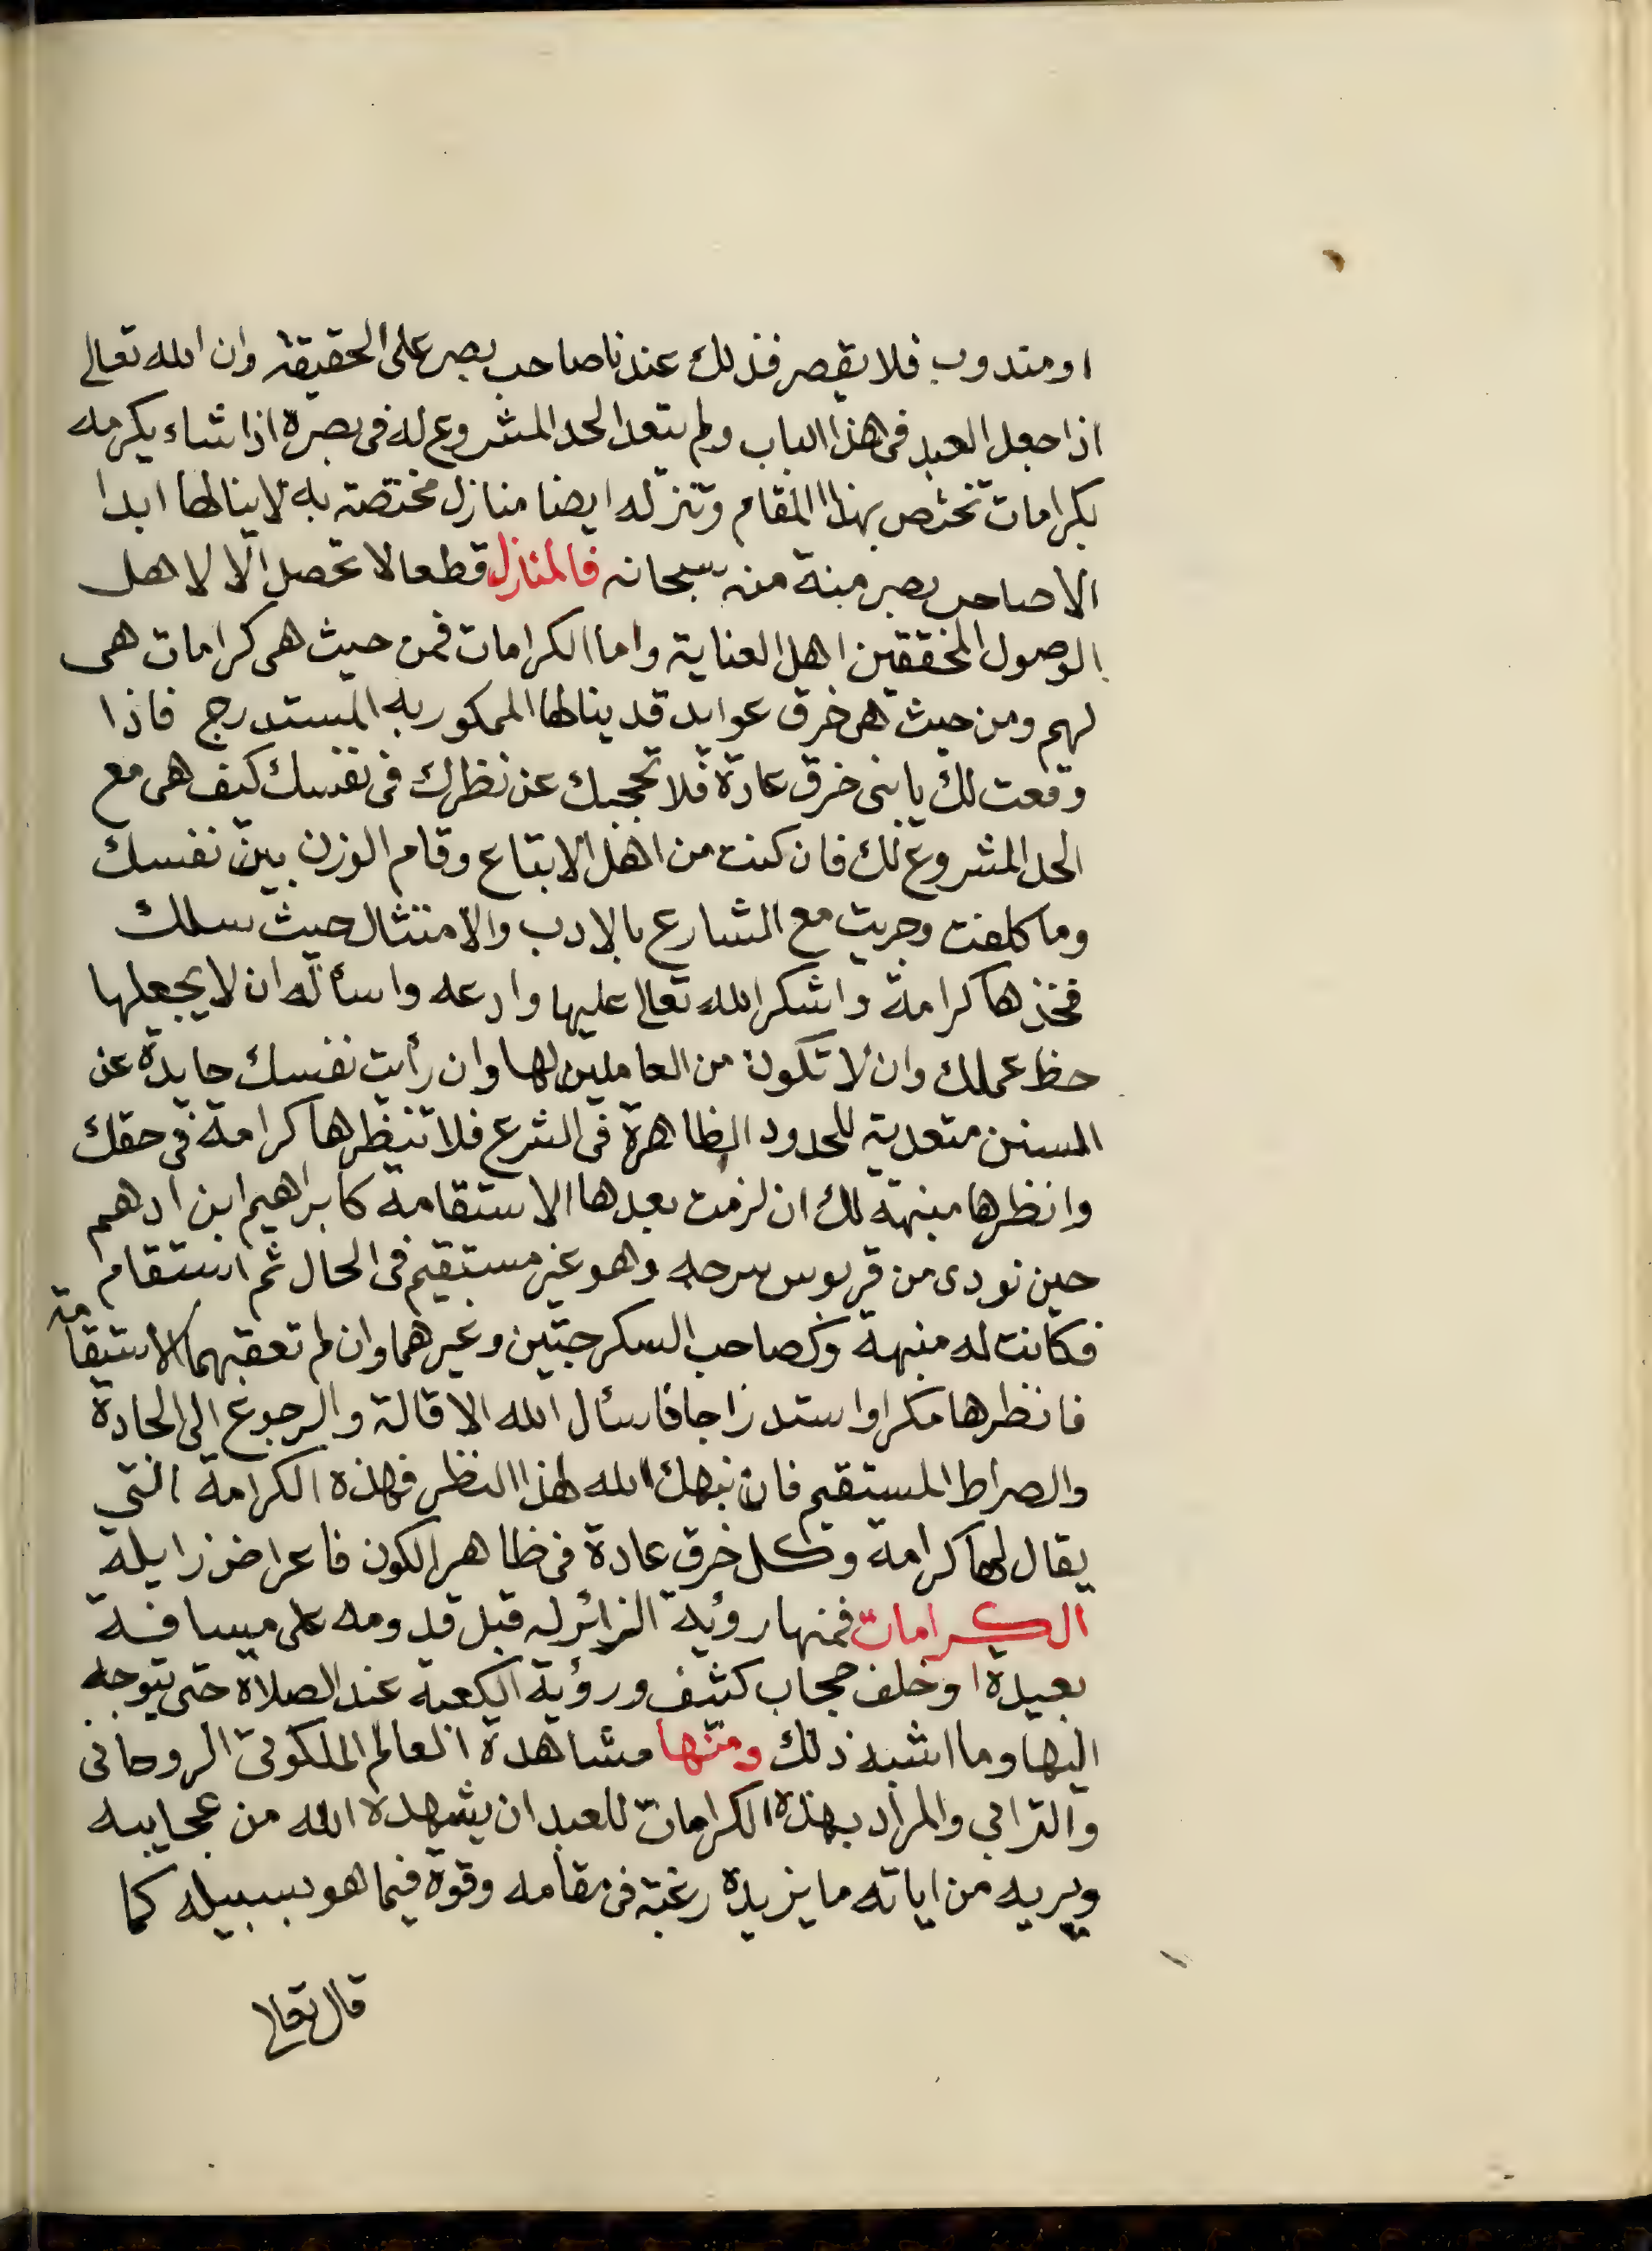 او مندوب فلا يقصر فذلك عندنا صاحب بصر على الحقيقة وان الله تعالى
اذا جعل العبد فى هذا الباب ولم يتعد الحد المشروع له فى بصره اذا شاء يكرمه
بكرامات تختص بهذا المقام وتنزله ايضا منازل مختصة به لا ينالها ابدا
الا صاحب بصر منة منه سبحانه فالمنازل قطعا لا تحصل الا لاهل
الوصول المحققين اهل العناية واما الكرامات فمن حيث هى كرامات هى
لهم ومن حيث هى خرق عوايد قد ينالها الممكور به المستدرج فاذا
وقعت لك يا بنى خرق عادة فلا تحجبك عن نظرك فى نفسك كيف هى مع
الحد المشروع لك فان كنت من اهل الاتباع وقام الوزن بين نفسك
وما كلفت وجريت مع الشارع بالادب والامتثال حيث سلك
فخذها كرامة واشكر الله تعالى عليها وادعه واسأله ان لا يجعلها
حظ عملك وان لا تكون من العاملين لها وان رأيت نفسك حايدة عن
السنن متعدية للحدود الظاهرة فى الشرع فلا تنظرها كرامة فى حقك
وانظرها منبهة لك ان لزمت بعدها الاستقامة كابراهيم ابن ادهم
حين نودى من قربوس سرجه وهو غير مستقيم فى الحال ثم استقام
فكانت له منبهة وكصاحب السكرجتين وغيرهما وان لم تعقبهما الاستقامة
فانظرها مكرا واستدراجا فاسأل الله الاقالة والرجوع الى الجادة
والصراط المستقيم فان نبهك الله لهذا النظر فهذه الكرامة التي
يقال لها كرامة وكل خرق عادة فى ظاهر الكون فاعراض زايلة
الكرامات فمنها رؤية الزائر له قبل قدومه على مسافة
بعيدة او خلف حجاب كثيف ورؤية الكعبة عند الصلاة حتى يتوجه
اليها وما اشبه ذلك ومنها مشاهدة العالم الملكوتى الروحانى
والترابي والمراد بهذه الكرامات للعبد ان يشهده الله من عجايبه
ويريه من اياته ما يزيده رغبة فى مقامه وقوة فيما هو بسبيله كما
قال تعالى